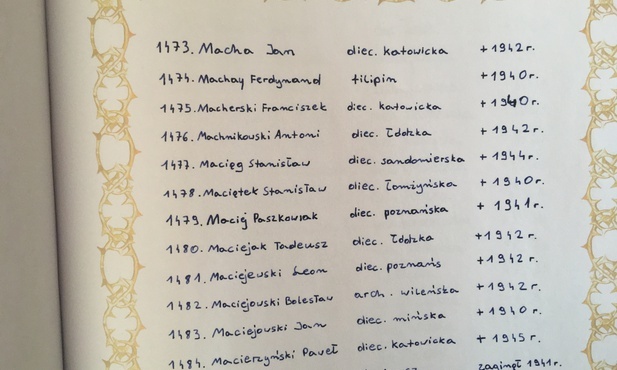 1473. Macha Jan diec. katowicka + 1942 r.
1474. Machay Ferdynand filipin + 1940 r.
1475. Macherski Franciszek diec. katowicka + 1940 r.
1476. Machnikowski Antoni diec. łódzka + 1942 r.
1477. Macięg Stanisław diec. sandomierska + 1944 r.
1478. Maciętek Stanisław diec. łomżyńska + 1940 r.
1479. Maciej Paszkowiak diec. poznańska + 1941 r.
1480. Maciejak Tadeusz diec. łódzka + 1942 r.
1481. Maciejewski Leon diec. poznańs + 1942 r.
1482. Maciejowski Bolesław arch. wileńska + 1942 r.
1483. Maciejowski Jan diec. mińska + 1940 r.
1484. Macierzyński Paweł diec. katowicka + 1945 r.
zaginął 1941 r.